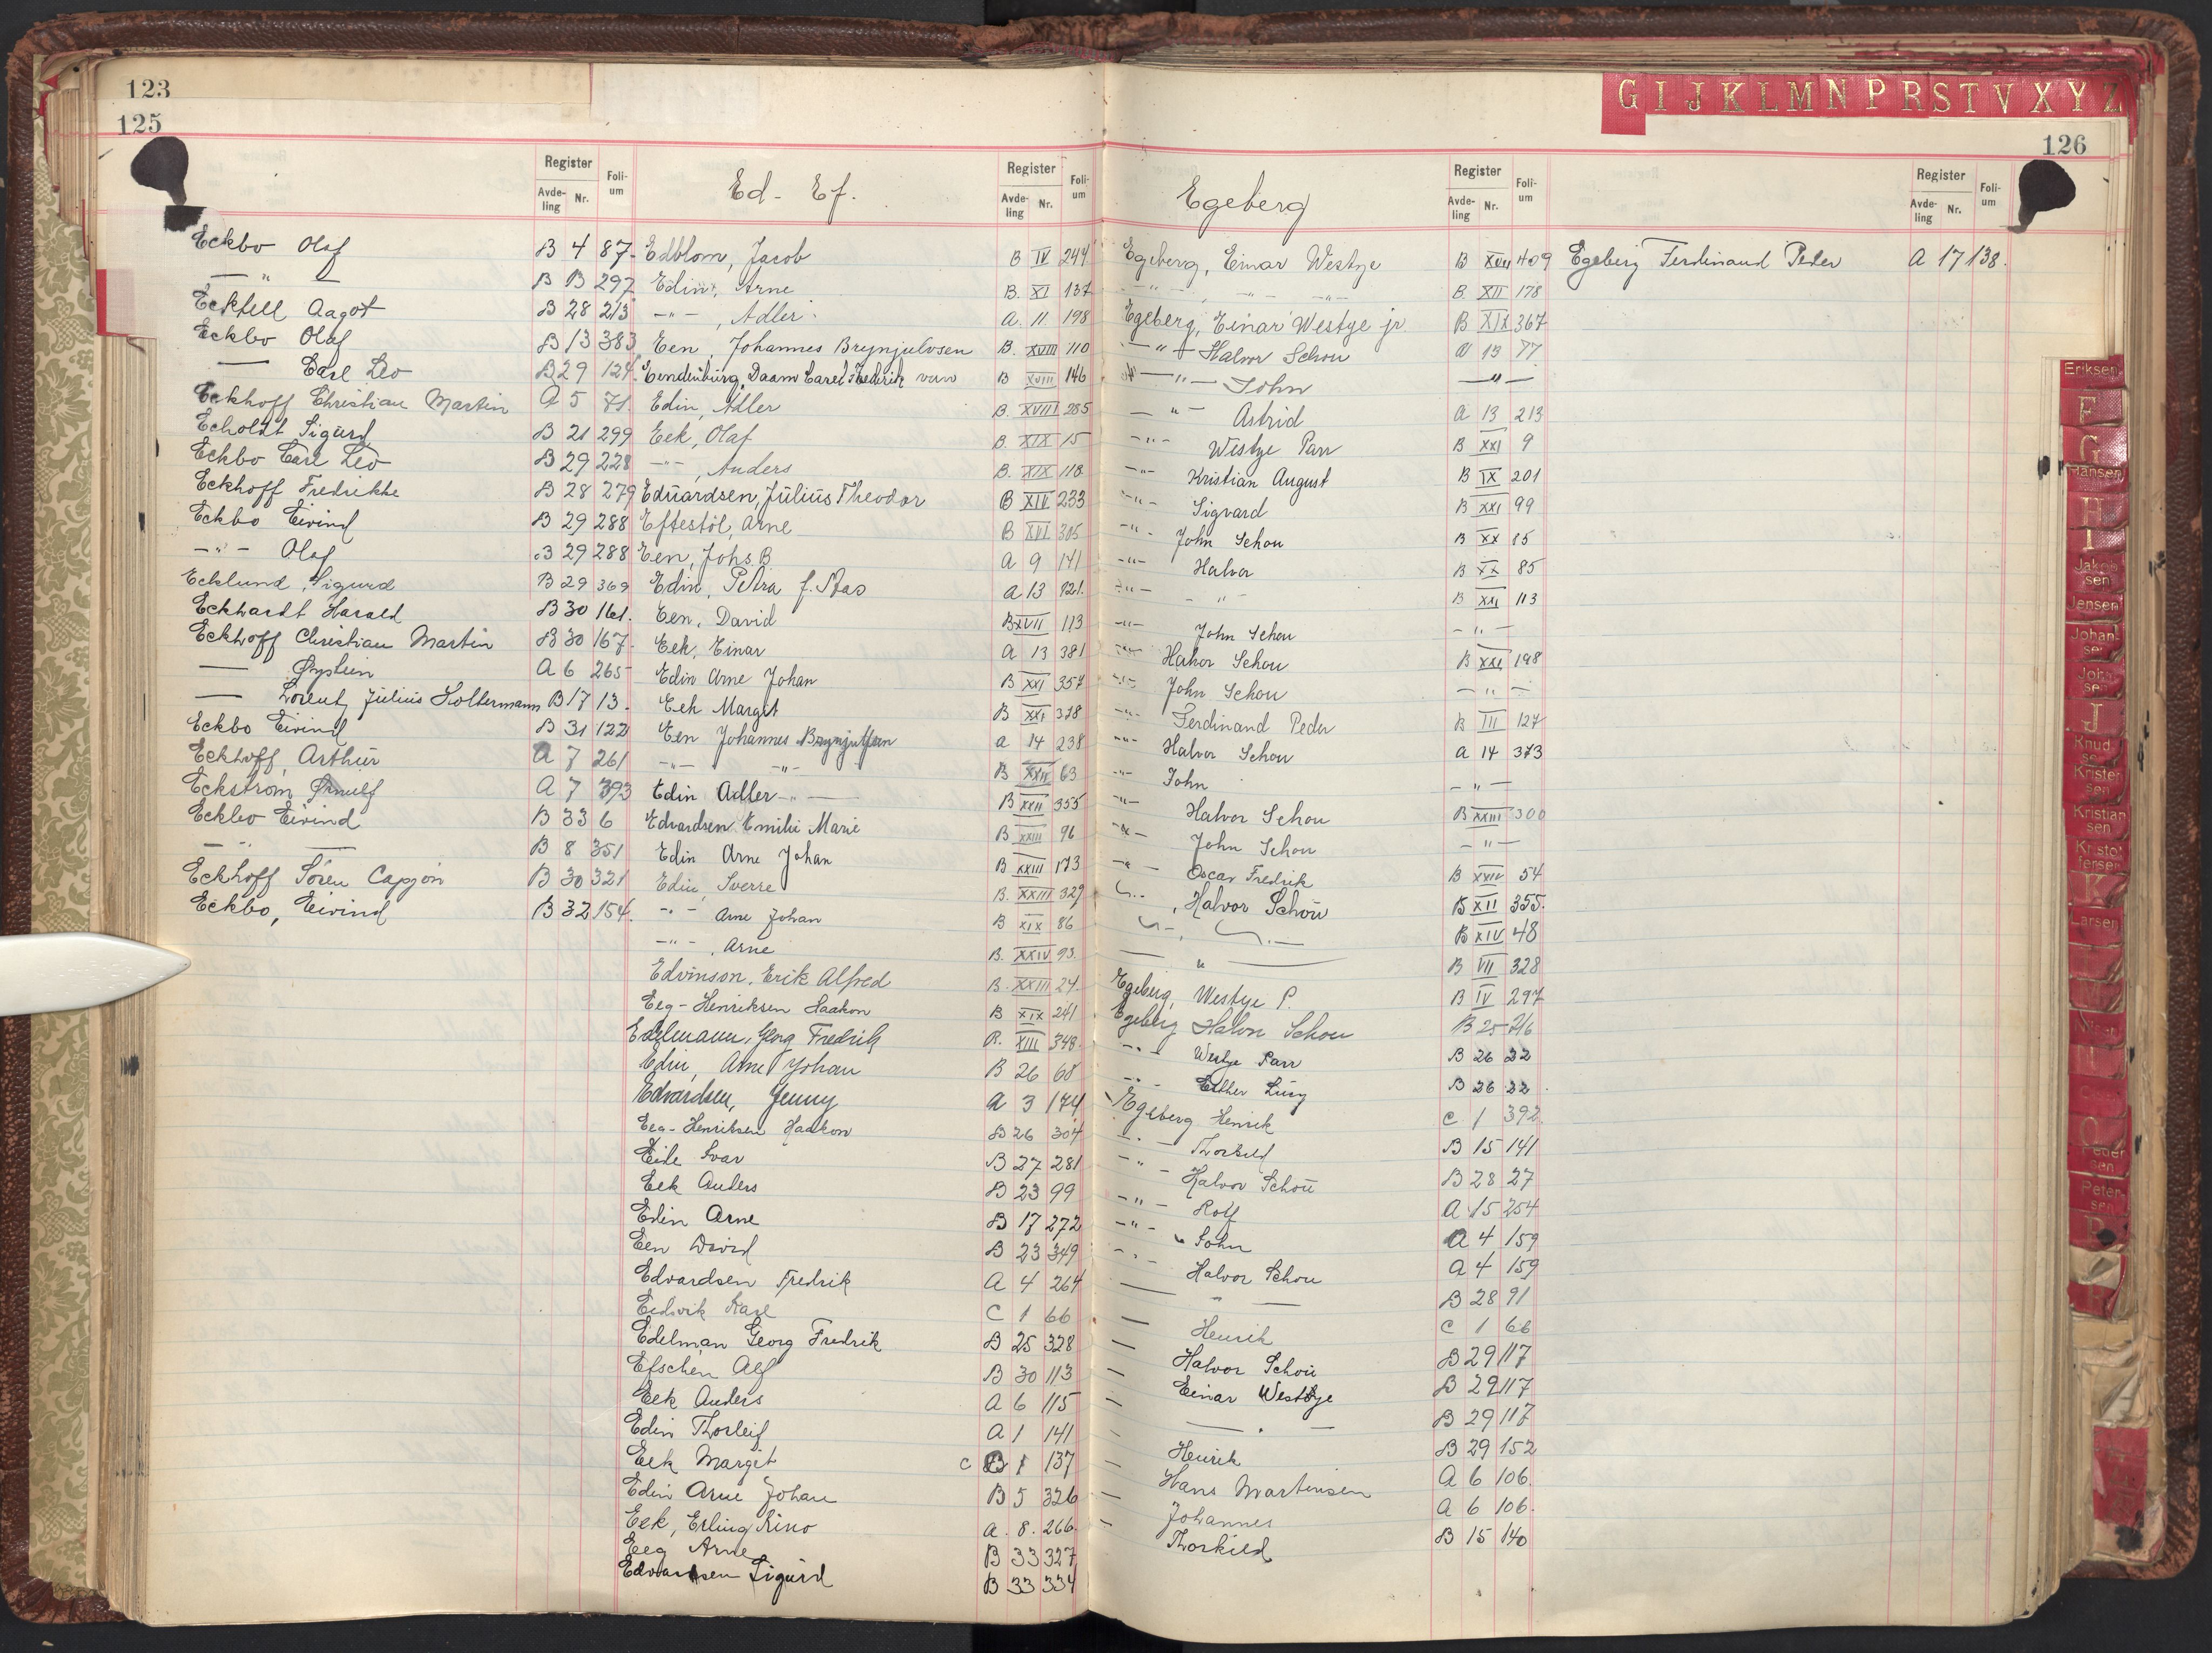 123
125
Register
Avde-ling Nr. Foli-um
Eckbo Olaf B 4 87
— " — B 13 297
Ecktell Aagot B 28 213
Eckbo Olaf B 13 383
— Carl Leo B 29 124
Eckhoff Christian Martin A 5 71
Echoldt Sigurd B 21 299
Eckbo Carl Leo B 29 228
Eckhoff Fredrikke B 28 279
Eckbo Eivind B 29 288
— " — Olaf B 29 288
Ecklund, Sigurd B 29 369
Eckhardt Harald B 30 161.
Eckhoff Christian Martin B 30 167.
— Øystein A 6 265
— Lorentz Julius Holtermann B 17 13.
Eckbo Eivind B 31 122
Eckhoff, Arthur A 7 261
Eckstrøm Ørnulf A 7 393
Eckbo Eivind B 33 6
— " — B 8 351
Eckhoff Sören Capjon B 30 321
Eckbo, Eivind B 32 154.
Ed - Ef.
Register
Avde-ling Nr. Foli-um
Edblom, Jacob B IV 244
Edin, Arne B. XI 137
— " —, Adler A. 11 198
Een, Johannes Brynjulvsen B. XVIII 110
Eendenburg, Daam Carel Frederik van B XVIII 146
Edin, Adler B. XVIII 285
Eek, Olaf B. XIX 15
— " —, Anders B. XIX 118
Eduardsen, Julius Theodor B XIV 233
Eftestöl, Arne B XVI 305
Een, Johs. B A 9 141
Edin, Petra f. A 13 121.
Een, David B XVII 113
Eek, Einar A 13 381
Edin Arne Johan B XXI 357
Eek Margit B XXI 378
Een Johannes Brynjulfsen A 14 238
— " — — " — B XXII 63
Edin Adler — " — B XXII 355
Edvardsen Emilie Marie B XXIII 96
Edin Arne Johan B XXIII 173
Edin, Sverre B. XXIII 329
— " — Arne Johan B XIX 86
— " —, Arne B. XXIV 93.
Edvinson, Erik Alfred B. XXIII 24.
Eeg-Henriksen Haakon B XIX 241
Edelmann, Georg Fredrik B. XIII 348.
Edin, Arne Johan B 26 68
Edvardsen, Jenny A 3 174
Eeg-Henriksen Haakon B 26 304
Eide Ivar B 27 281
Eek Anders B 23 99
Edin Arne B 17 272
Een David B 23 349
Edvardsen Fredrik A 4 264
Eidsvik Kare C 1 66
Edelman Georg Fredrik B 25 328
Efschen Alf B 30 113
Eek Anders A 6 115
Edin Thorleif A 1 141
Eek Margit C 1 137
Edin Arne Johan B 5 326
Eek, Erling Rino A. 8. 266.
Eeg Arne B 33 327
Edvardsen Sigurd B 33 334
G I J K L M N P R S T V X Y Z
126
Egeberg
Register
Avde-ling Nr. Foli-um
Egeberg, Einar Westye B XVII 409
— " —, — " — — " — B. XII 178
Egeberg, Einar Westye jr B XIX 367
— " — Halvor Schou A 13 77
— " — John — " —
— " — Astrid A 13 213
— " — Westye Parr B XXI 9
— " — Kristian August B IX 201
— " — Sigvard B XXI 99
— " — John Schou B XX 85
— " — Halvor B XX 85
— " — — " — B XXI 113
— " — John Schou — " —
— " — Halvor Schou B XXI 198
— " — John Schou — " —
— " — Ferdinand Peder B III 127
— " — Halvor Schou A 14 373
— " — John — " —
— " — Halvor Schou B XXIII 300
— " — John Schou — " —
— " — Oscar Fredrik B XXIV 54
— " —, Halvor Schou B XII 355.
— " —, — " — B XIV 48
— " — B VII 328
Egeberg, Westye P. B IV 297
Egeberg Halvor Schou B 25 216
— " — Westye Parr B 26 22
— " — Esther Lucy B 26 22
Egeberg Henrik C 1 392
— " — Thorkild B 15 141
— " — Halvor Schou B 28 27
— " — Rolf A 15 254
— " — John A 4 159
— " — Halvor Schou A 4 159
— " — B 28 91
— Henrik C 1 66
— Halvor Schou B 29 117
— Einar Westye B 29 117
— " — B 29 117
— Henrik B 29 152
— Hans Martinsen A 6 106.
— Johannes A 6 106.
— Thorkild B 15 140
Register
Avde-ling Nr. Foli-um
Egeberg Ferdinand Peder A 17 138.
Eriksen
F
G
Hansen
H
I
Jakobsen
Jensen
Johansen
Johnsen
J
Knudsen
Kristensen
Kristiansen
Kristoffersen
K
Larsen
Nilsen
O
Pedersen
Petersen